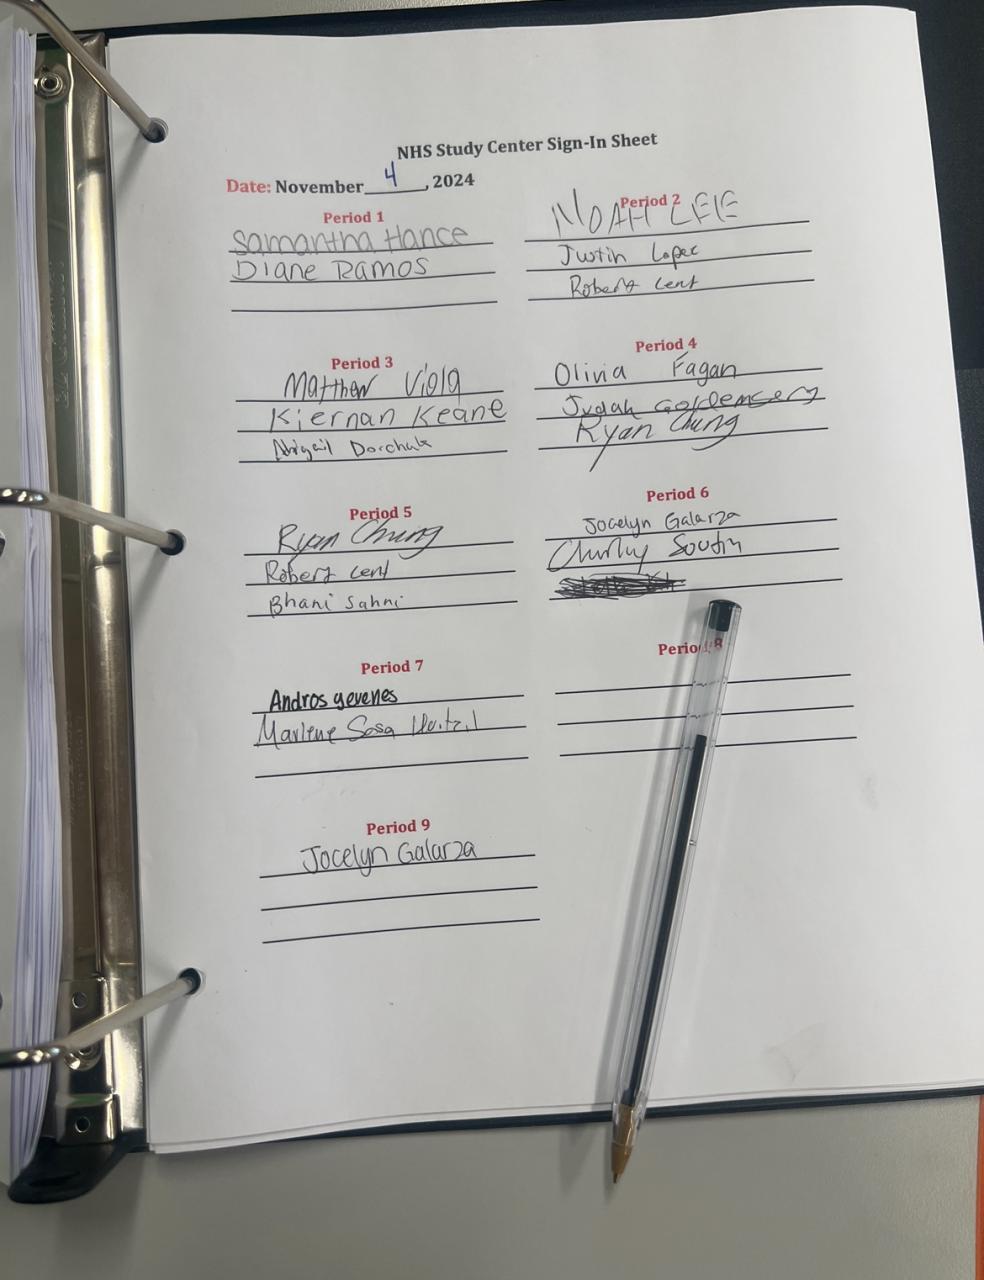 NHS Study Center Sign-In Sheet
Date: November 4, 2024
Period 1
Samantha Hance
Diane Ramos
Period 2
NOAH LEE
Justin Lopez
Robert Cent
Period 3
Matthew Viola
Kiernan Keane
Abigail Dorchak
Period 4
Olivia Fagan
Judah
Ryan Chung
Period 5
Ryan Chung
Robert Cent
Bhani Sahni
Period 6
Jocelyn Galarza
Period 7
Andros gevenes
Marlene Sosa
Period 8
Period 9
Jocelyn Galarza